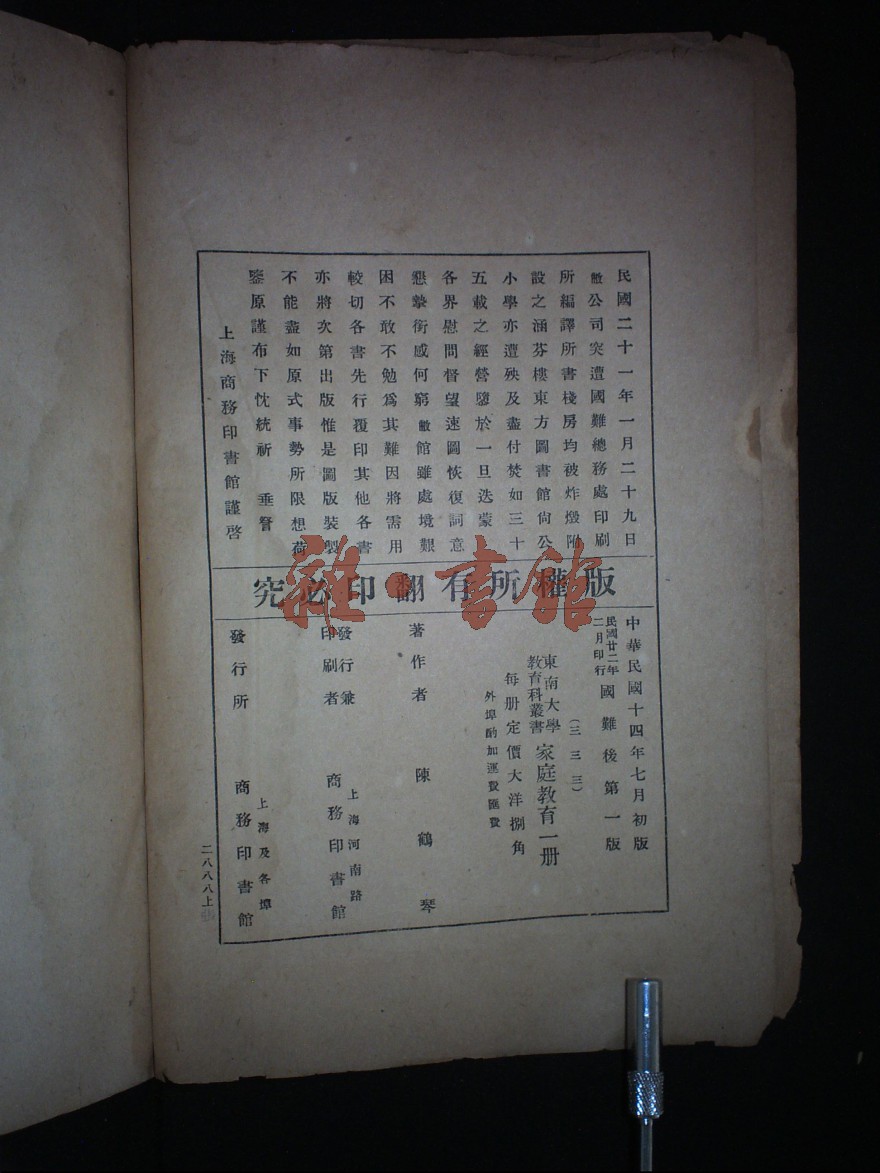 民國二十一年一月二十九日
敝公司突遭國難總務處印刷
所編譯所書棧房均被炸燬附
設之涵芬樓東方圖書館尙公
小學亦遭殃及盡付焚如三十
五載之經營隳於一旦迭蒙
各界慰問督望速圖恢復詞意
懇摯銜感何窮敝館雖處境艱
困不敢不勉爲其難因將需用
較切各書先行覆印其他各書
亦將次第出版惟是圖版裝製
不能盡如原式事勢所限想荷
鑒原謹布下忱統祈 垂詧
上海商務印書館謹啓
版權所有翻印必究
中華民國十四年七月初版
民國廿二年二月印行 國難後第一版
(三三三)
東南大學教育科叢書 家庭教育一册
每册定價大洋捌角
外埠酌加運費匯費
著作者 陳鶴琴
發行兼印刷者 上海河南路 商務印書館
發行所 上海及各埠 商務印書館
二八八八上
雜·書館